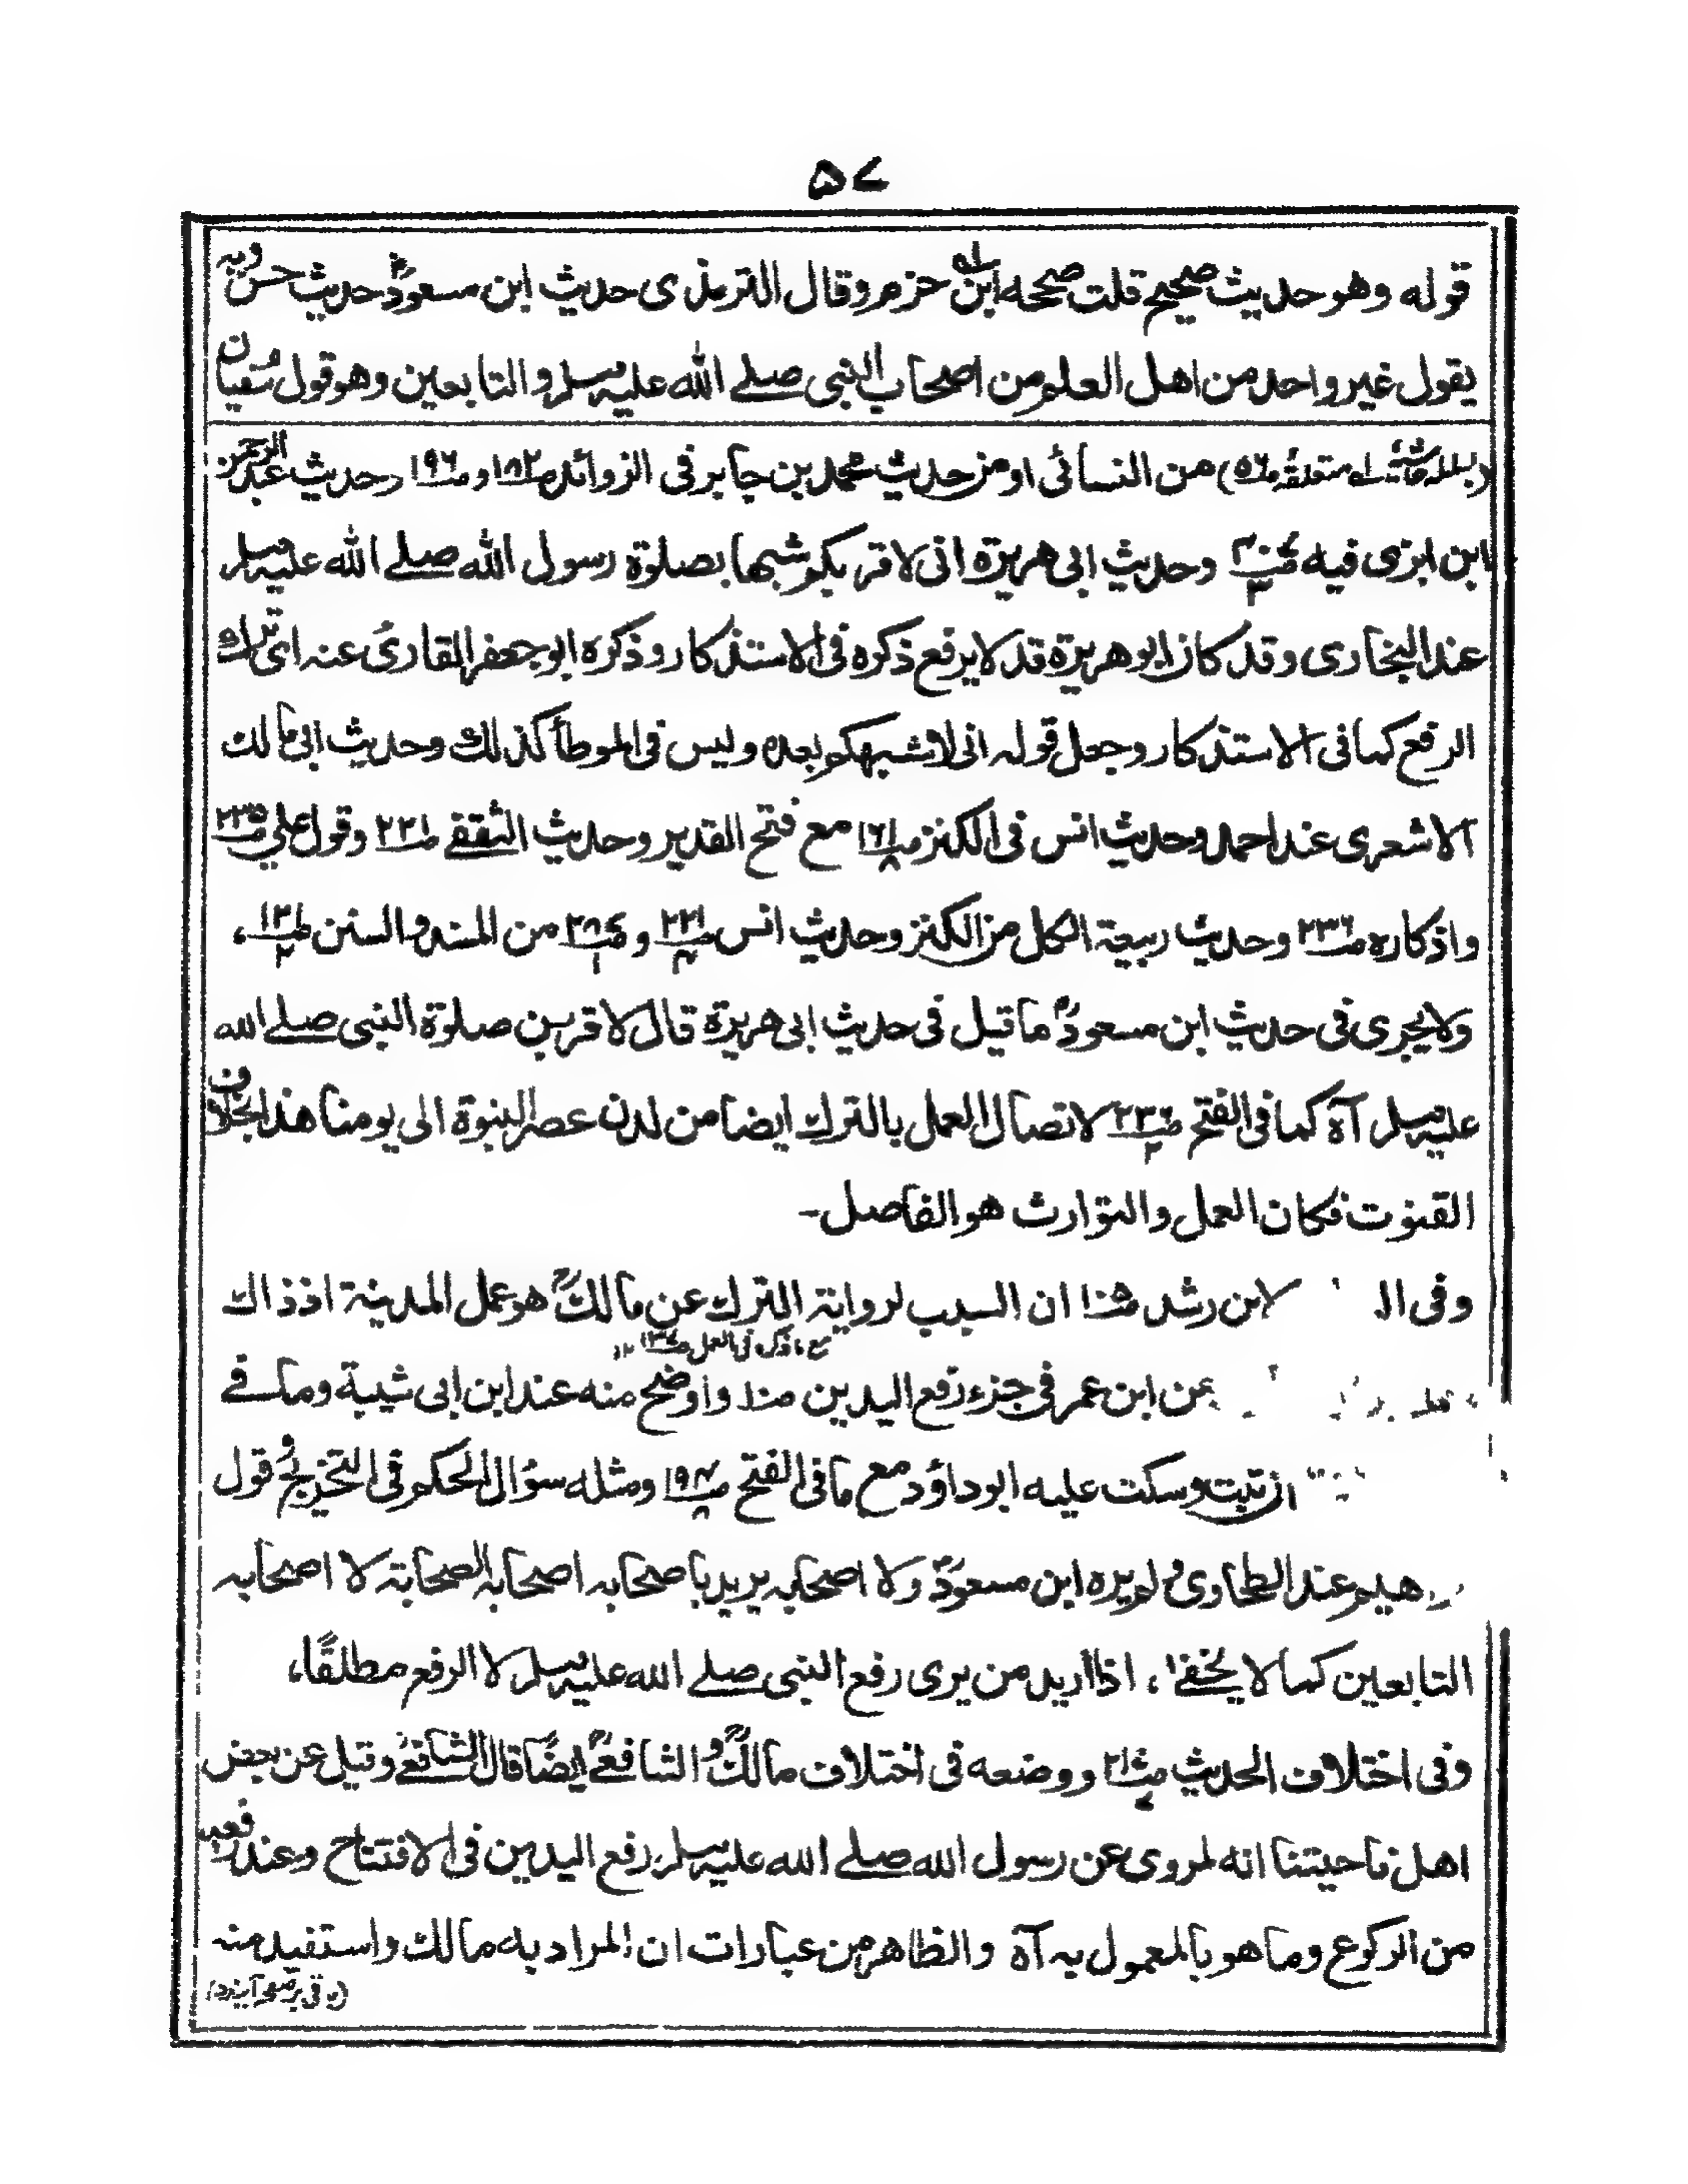 ۵۷
قوله وهو حديث صحيح قلت صححه ابن حزم وقال الترمذى حديث ابن مسعودؓ حديث حسن وبه
يقول غير واحد من اهل العلم من اصحاب النبى صلے الله عليه وسلم والتابعين وهو قول سفيان
(بسلسله حاشيه له متعلقه ص۵۶) من النسائى او من حديث محمد بن جابر فى الزوائد ص۱۸۲ و ص۱۹۶ وحديث عبد الرحمن
ابن ابزى فيه وحديث ابى هريرة انى لاقربكم شبها بصلوة رسول الله صلے الله عليه وسلم
عند البخارى وقد كان ابو هريرة قد لا يرفع ذكره فى الاستذكار وذكره ابو جعفر القارئ عنه اى ترك
الرفع كما فى الاستذكار وجعل قوله انى لاشبهكم بعده وليس فى الموطأ كذلك وحديث ابى مالك
الاشعرى عند احمد وحديث انس فى الكنز مع فتح القدير وحديث الثقفے ص۲۲۱ وقول علي ص۲۳۵
واذكاره ص۲۳۶ وحديث ربيعة الكل من الكنز وحديث انس و من المسند والسنن
ولا يجرى فى حديث ابن مسعودؓ ما قيل فى حديث ابى هريرة قال لاقربن صلوة النبى صلے الله
عليه وسلم آه كما فى الفتح ص۲۳۶/۲ لاتصال العمل بالترك ايضا من لدن عصر النبوة الى يومنا هذا بخلاف
القنوت فكان العمل والتوارث هو الفاصل۔
وفى لابن رشد ان السبب لرواية الترك عن مالكؒ هو عمل المدينة اذ ذاك
مع ما ذكره فى العمل
عمن ابن عمر فى جزء رفع اليدين واوضح منه عند ابن ابى شيبة وما فے
ان تثبت وسكت عليه ابو داؤد مع ما فى الفتح ومثله سؤال الحكم فى التخريج وقول
هيم عند الطحاوى ولم يره ابن مسعودؓ ولا اصحابه يريد باصحابه اصحابه الصحابة لا اصحابه
التابعين كما لا يخفے، اذا اريد من يرى رفع النبى صلے الله عليه وسلم لا الرفع مطلقًا،
وفى اختلاف الحديث ووضعه فى اختلاف مالكؒ و الشافعےؒ ايضًا قال الشافعےؒ وقيل عن بعض
اهل ناحيتنا انه لمروى عن رسول الله صلے الله عليه وسلم رفع اليدين فى الافتتاح وعند رفعه
من الركوع وما هو بالمعمول به آه والظاهر من عبارات ان المراد به مالك واستفيد منه
(باقى بر صفحه آينده)